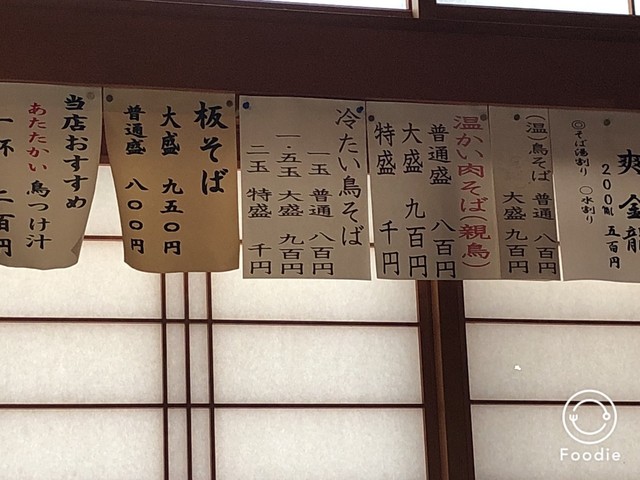 爽 金龍
200㎖ 五百円
◎そば湯割り ○水割り
(温)鳥そば 普通 八百円
大盛 九百円
温かい肉そば(親鳥)
普通盛 八百円
大盛 九百円
特盛 千円
冷たい鳥そば
一玉 普通 八百円
一.五玉 大盛 九百円
二玉 特盛 千円
板そば
大盛 九五〇円
普通盛 八〇〇円
当店おすすめ
あたたかい鳥つけ汁
一杯 二百円
Foodie